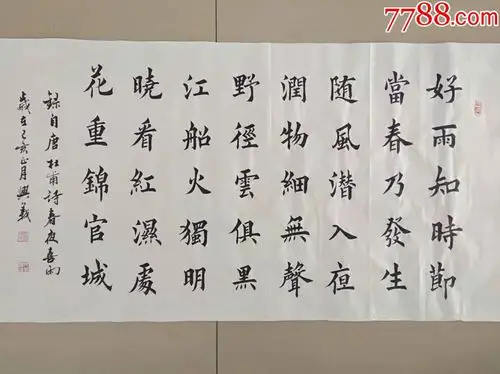 7788.com
好雨知時節
當春乃發生
随風潛入夜
潤物細無聲
野徑雲俱黑
江船火獨明
曉看紅濕處
花重錦官城
錄自唐杜甫詩春夜喜雨
歲在己亥正月興義